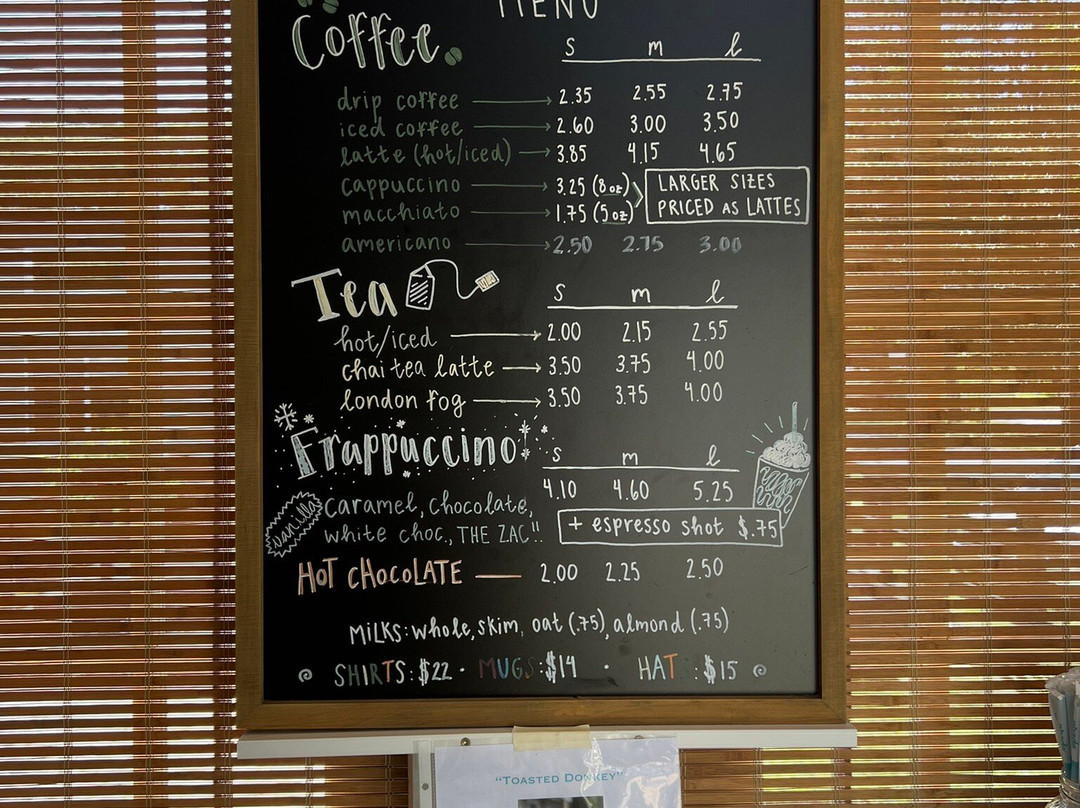 MENU
Coffee
s m l
drip coffee 2.35 2.55 2.75
iced coffee 2.60 3.00 3.50
latte (hot/iced) 3.85 4.15 4.65
cappuccino 3.25 (8oz)
macchiato 1.75 (5oz)
LARGER SIZES
PRICED AS LATTES
americano 2.50 2.75 3.00
Tea
s m l
hot/iced 2.00 2.15 2.55
chai tea latte 3.50 3.75 4.00
london fog 3.50 3.75 4.00
Frappuccino
s m l
4.10 4.60 5.25
vanilla
caramel, chocolate,
white choc., THE ZAC!!
+ espresso shot $.75
HOT CHOCOLATE 2.00 2.25 2.50
MILKS: whole, skim, oat (.75), almond (.75)
SHIRTS: $22 · MUGS: $14 · HAT : $15
"TOASTED DONKEY"